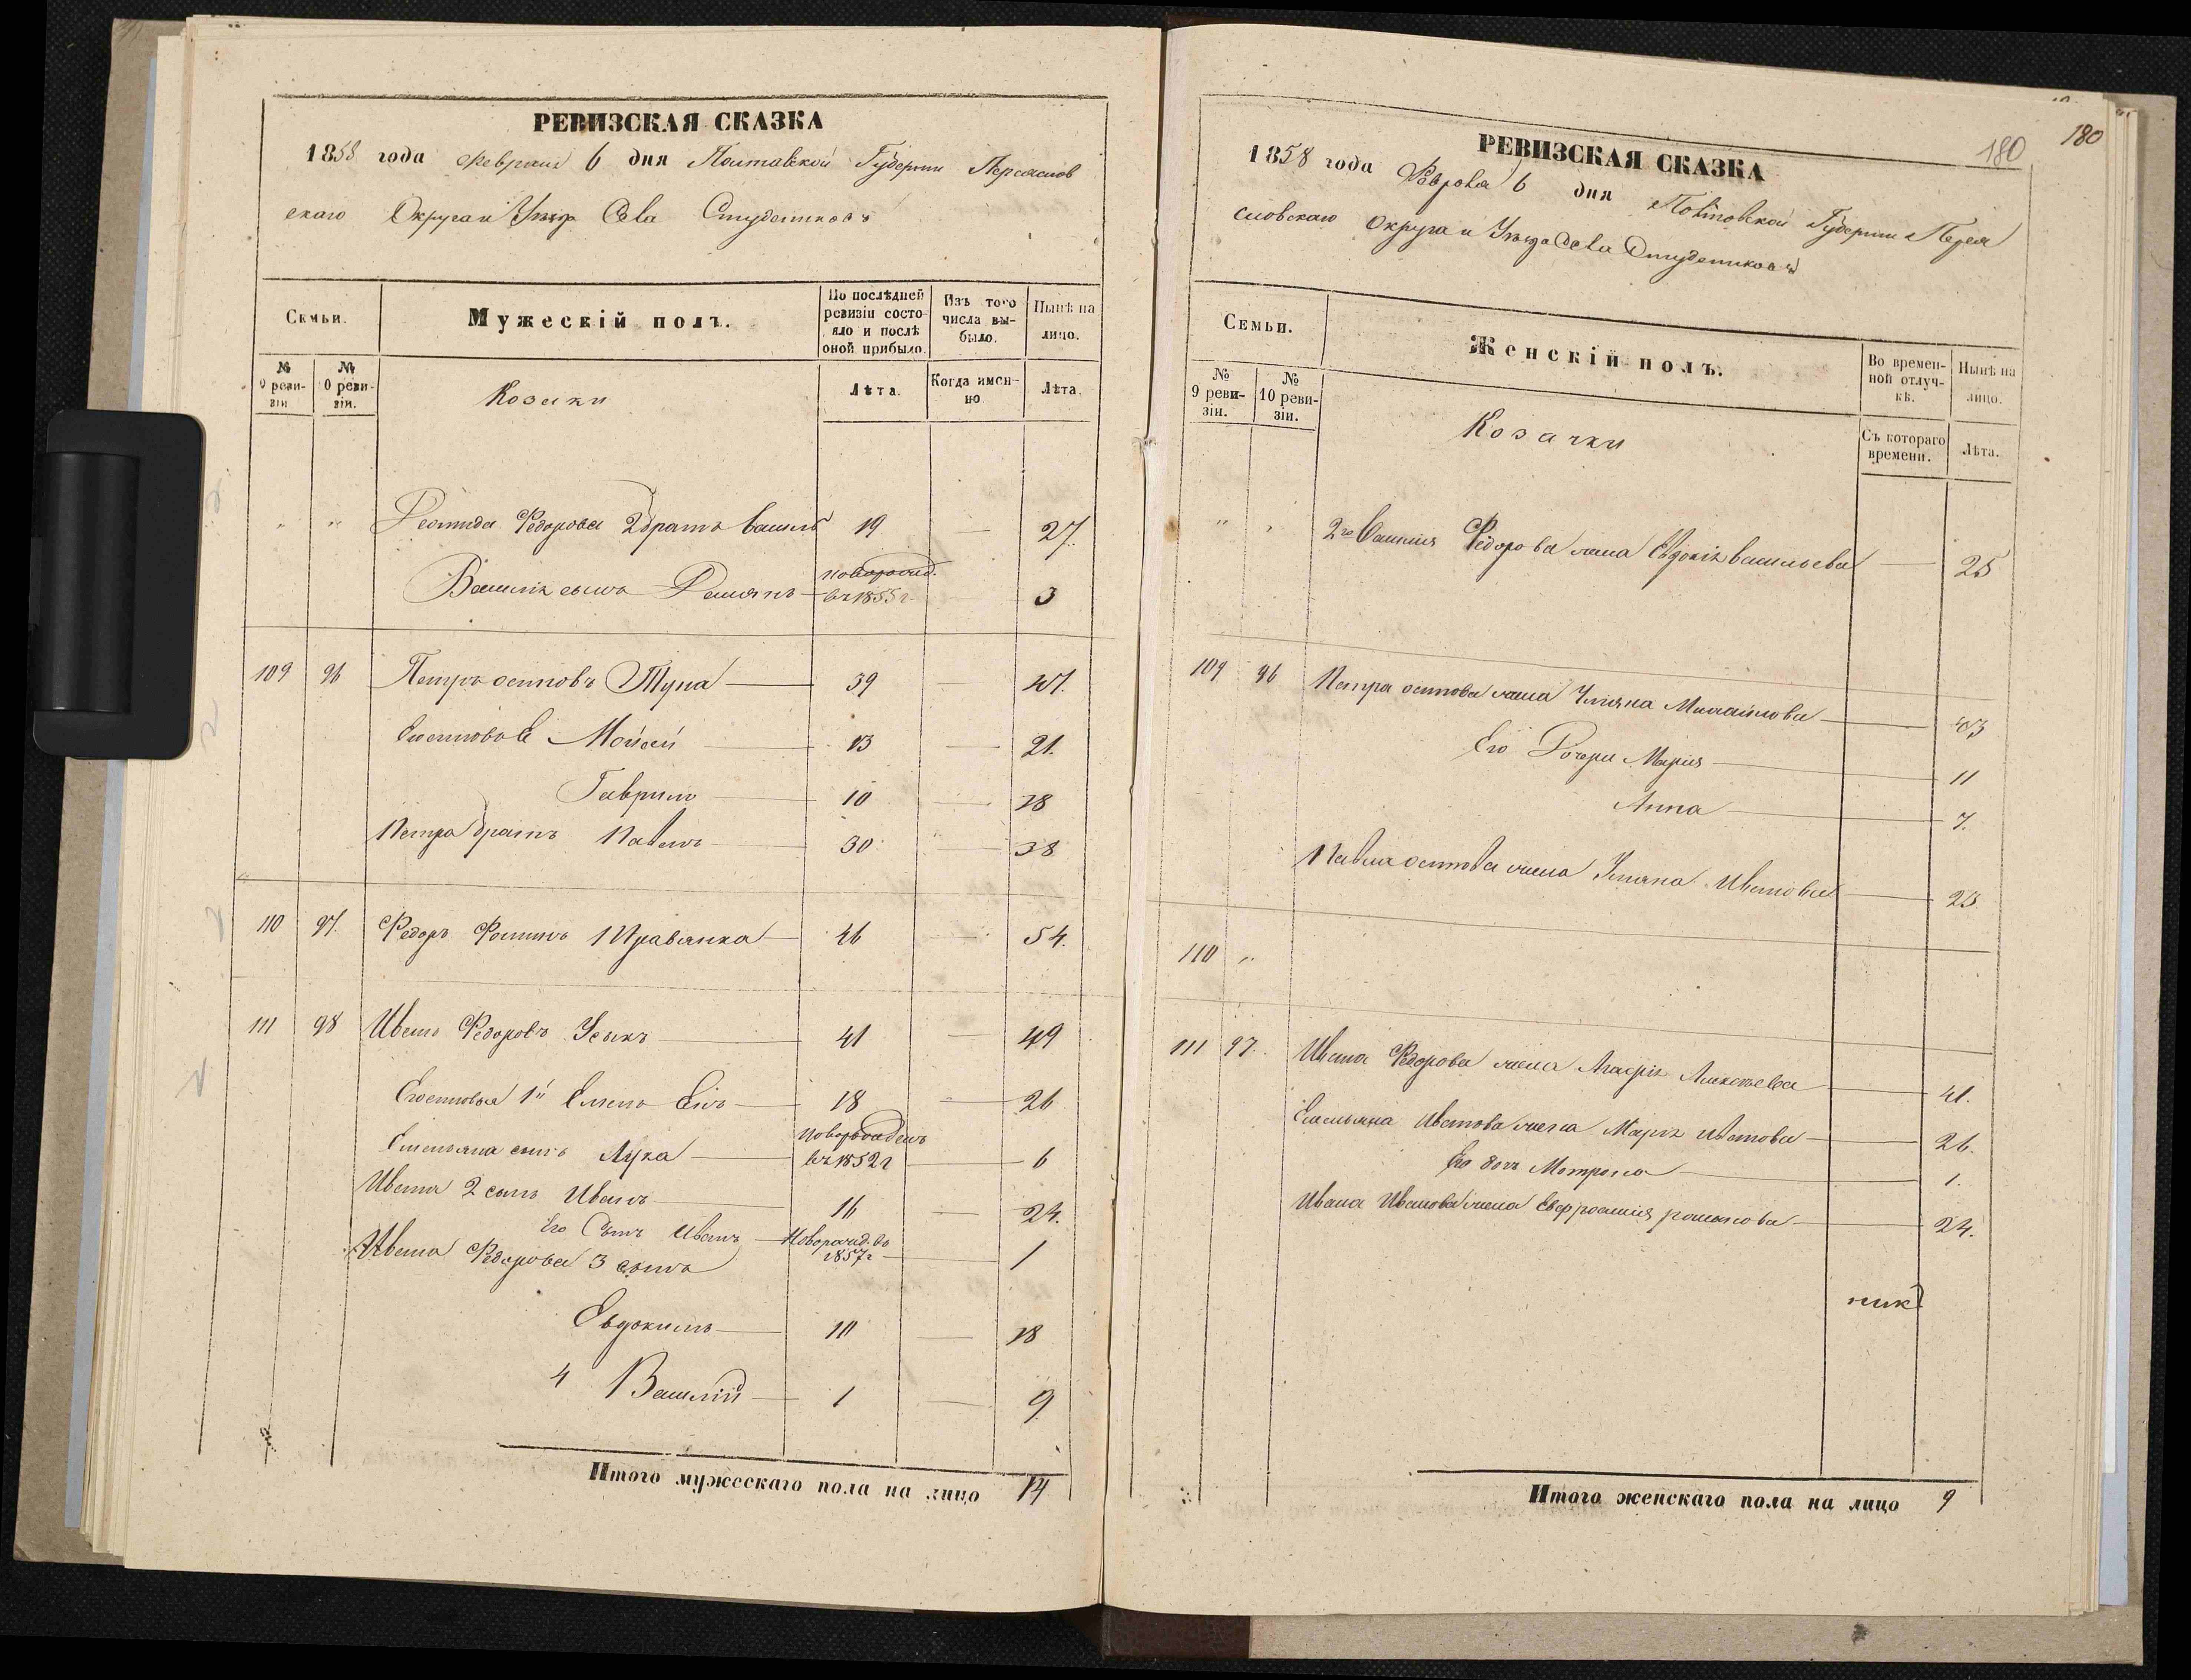 РЕВИЗСКАЯ СКАЗКА
1858 года Февраля 6 дня Полтавской Губернии Переяслов
скаго Округа и Уезда Села Студениковъ
Семьи.
Мужескій полъ.
По послѣдней ревизіи состояло и послѣ оной прибыло.
Изъ того числа выбыло.
Нынѣ на лицо.
№ 9 ревизіи
№ 10 ревизіи.
Козаки
Лѣта.
Когда именно
Лѣта.
" " Федорова 2 братъ Василь 19 — 27.
Василія сынъ Демянъ новорожд. въ 1855 г. 3
109 96 Петръ осиповъ Тупа 39 — 47.
Моисей 13 — 21.
Гаврило 10 — 18
Петра братъ Павелъ 30 — 38
110 97. Федоръ Фоминъ 46 — 54.
111 98 Иванъ Федоровъ Усыкъ 41 — 49
18 — 26
Емельяна сынъ Лука новорожденъ въ 1852 г — 6
Ивана 2 сынъ Иванъ 16 — 24.
Его Сынъ Иванъ Новорожд. въ 1857 г — 1
Ивана Федорова 3 сынъ
Евдокимъ 10 — 18
4 Василій 1 — 9
Итого мужескаго пола на лицо 14
180
180
РЕВИЗСКАЯ СКАЗКА
1858 года Февраля 6 дня Полтавской Губернии Перея
словскаго Округа и Уезда Села Студениковъ
Семьи.
Женскій полъ.
Во временной отлучкѣ.
Нынѣ на лицо.
№ 9 ревизіи.
№ 10 ревизіи.
Козачки
Съ котораго времени.
Лѣта.
" " 2го Василія Федорова жена Евдокія васильева — 25
109 96 Петра осипова жена Ульяна Михайлова — 43
Его Дочери Марія — 11
Анна — 7.
Павла осипова жена Ульяна Иванова — 25
110 "
111 97. Ивана Федорова жена Агафія Алексѣева — 41.
Емельяна Иванова жена Марія иванова — 26.
Его дочь Матрона — 1.
Ивана Иванова жена Евфросинія романова — 24.
ник
Итого женскаго пола на лицо 9